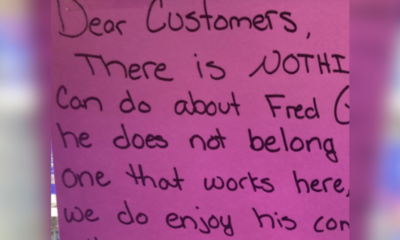 Dear Customers,
There is NOTHI
Can do about Fred (
he does not belong
one that works here,
we do enjoy his com